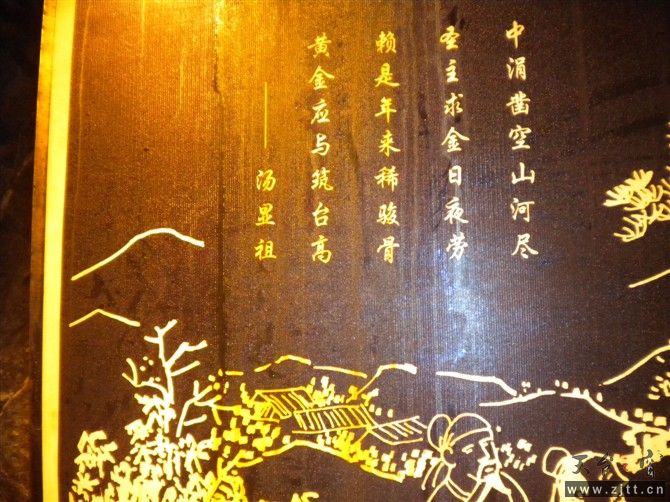 中涓凿空山河尽
圣主求金日夜劳
赖是年来稀骏骨
黄金应与筑台高
——汤显祖
www.zjtt.cn